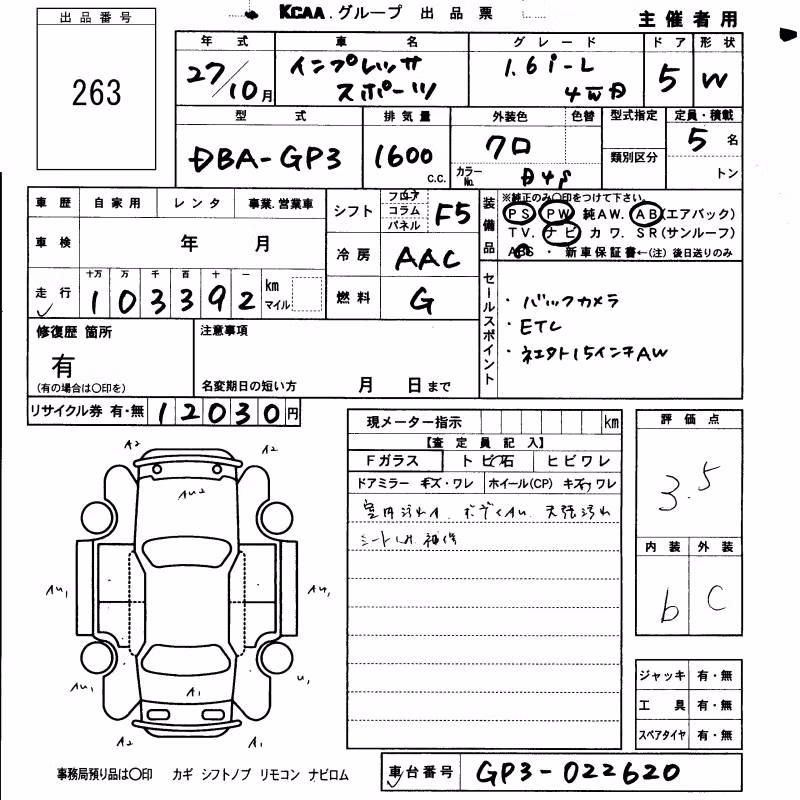 KCAA.グループ 出品票
主催者用
出品番号
263
年式 車名 グレード ドア 形状
27/10月 インプレッサ スポーツ 1.6i-L 4WD 5 W
型式 排気量 外装色 色替 型式指定 定員・積載
DBA-GP3 1600 c.c. クロ カラーNo. D4S 類別区分 5名 トン
車歴 自家用 レンタ 事業.営業車
車検 年 月
走行 十万 万 千 百 十 一
103392 km マイル
シフト フロア コラム パネル F5
冷房 AAC
燃料 G
装備品
※純正のみ○印をつけて下さい。
PS PW 純AW. AB(エアバック)
TV. ナビ カワ. SR(サンルーフ)
ABS ・ 新車保証書←(注)後日送りのみ
セールスポイント
・バックカメラ
・ETC
・社外15インチAW
修復歴 箇所
有
(有の場合は○印を)
注意事項
名変期日の短い方 月 日まで
リサイクル券 有・無 12030円
現メーター指示 km
【査定員記入】
Fガラス トビ石 ヒビワレ
ドアミラー キズ・ワレ ホイール(CP) キズ・ワレ
室内汚れA ボディAU 天張汚れ
シート 補修
評価点
3.5
内装 外装
b C
A2 A2
AU2
AU1 AU1
AU1 A1 U1
A2 A1
ジャッキ 有・無
工具 有・無
スペアタイヤ 有・無
事務局預り品は○印 カギ シフトノブ リモコン ナビロム
車台番号 GP3-022620